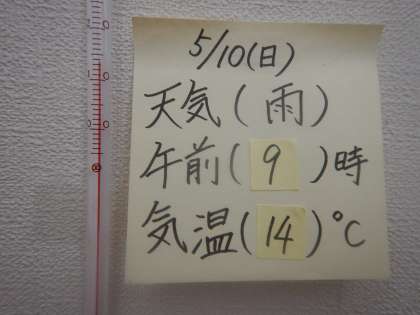 5/10(日)
天気(雨)
午前(9)時
気温(14)℃